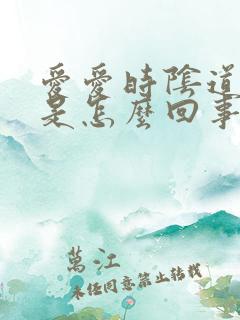 愛愛時陰道
是怎麼回事
萬江
未经同意禁止转载